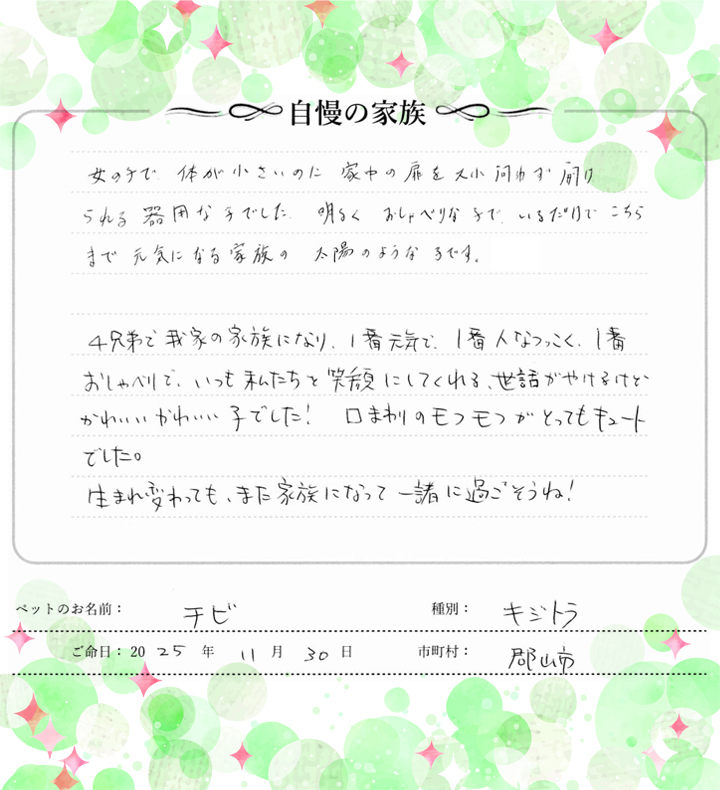 自慢の家族
女の子で 体が小さいのに 家中の扉を大小問わず開け
られる 器用な子でした。 明るく おしゃべりな子で、いるだけで こちら
まで 元気になる 家族の 太陽のような子です。
4兄弟で我家の家族になり、1番元気で、1番人なつっこく、1番
おしゃべりで、いつも私たちを笑顔にしてくれる、世話がやけるけど
かわいいかわいい子でした！ 口まわりのモフモフがとってもキュート
でした。
生まれ変わっても、また家族になって一緒に過ごそうね！
ペットのお名前： チビ 種別： キジトラ
ご命日：2025年 11月 30日 市町村： 郡山市